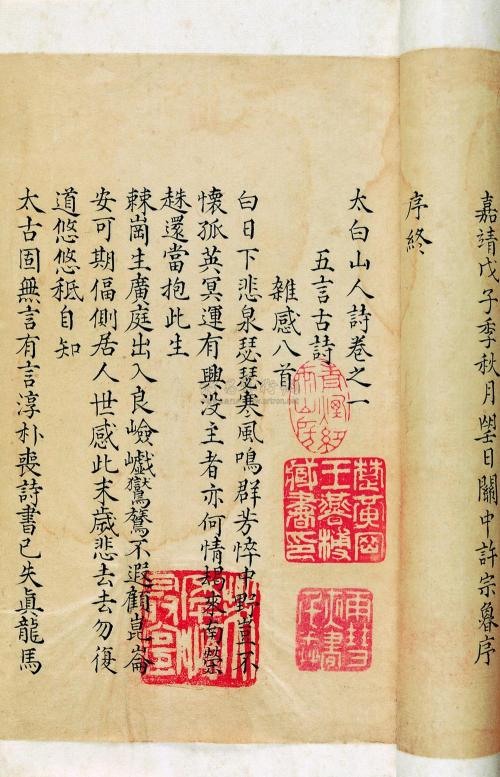 嘉靖戊子季秋月望日關中許宗魯序
序終
太白山人詩卷之一
五言古詩
雜感八首
白日下悲泉瑟瑟寒風鳴群芳悴中野豈不
懷孤英冥運有興没主者亦何情朅來南榮
趎還當抱此生
棘崗生廣庭出入良嶮巇驚不遐顧崑崙
安可期偪側居人世感此末歲悲去去勿復
道悠悠秖自知
太古固無言有言淳朴喪詩書已失真龍馬
楚黃岡
王禮培
藏書印